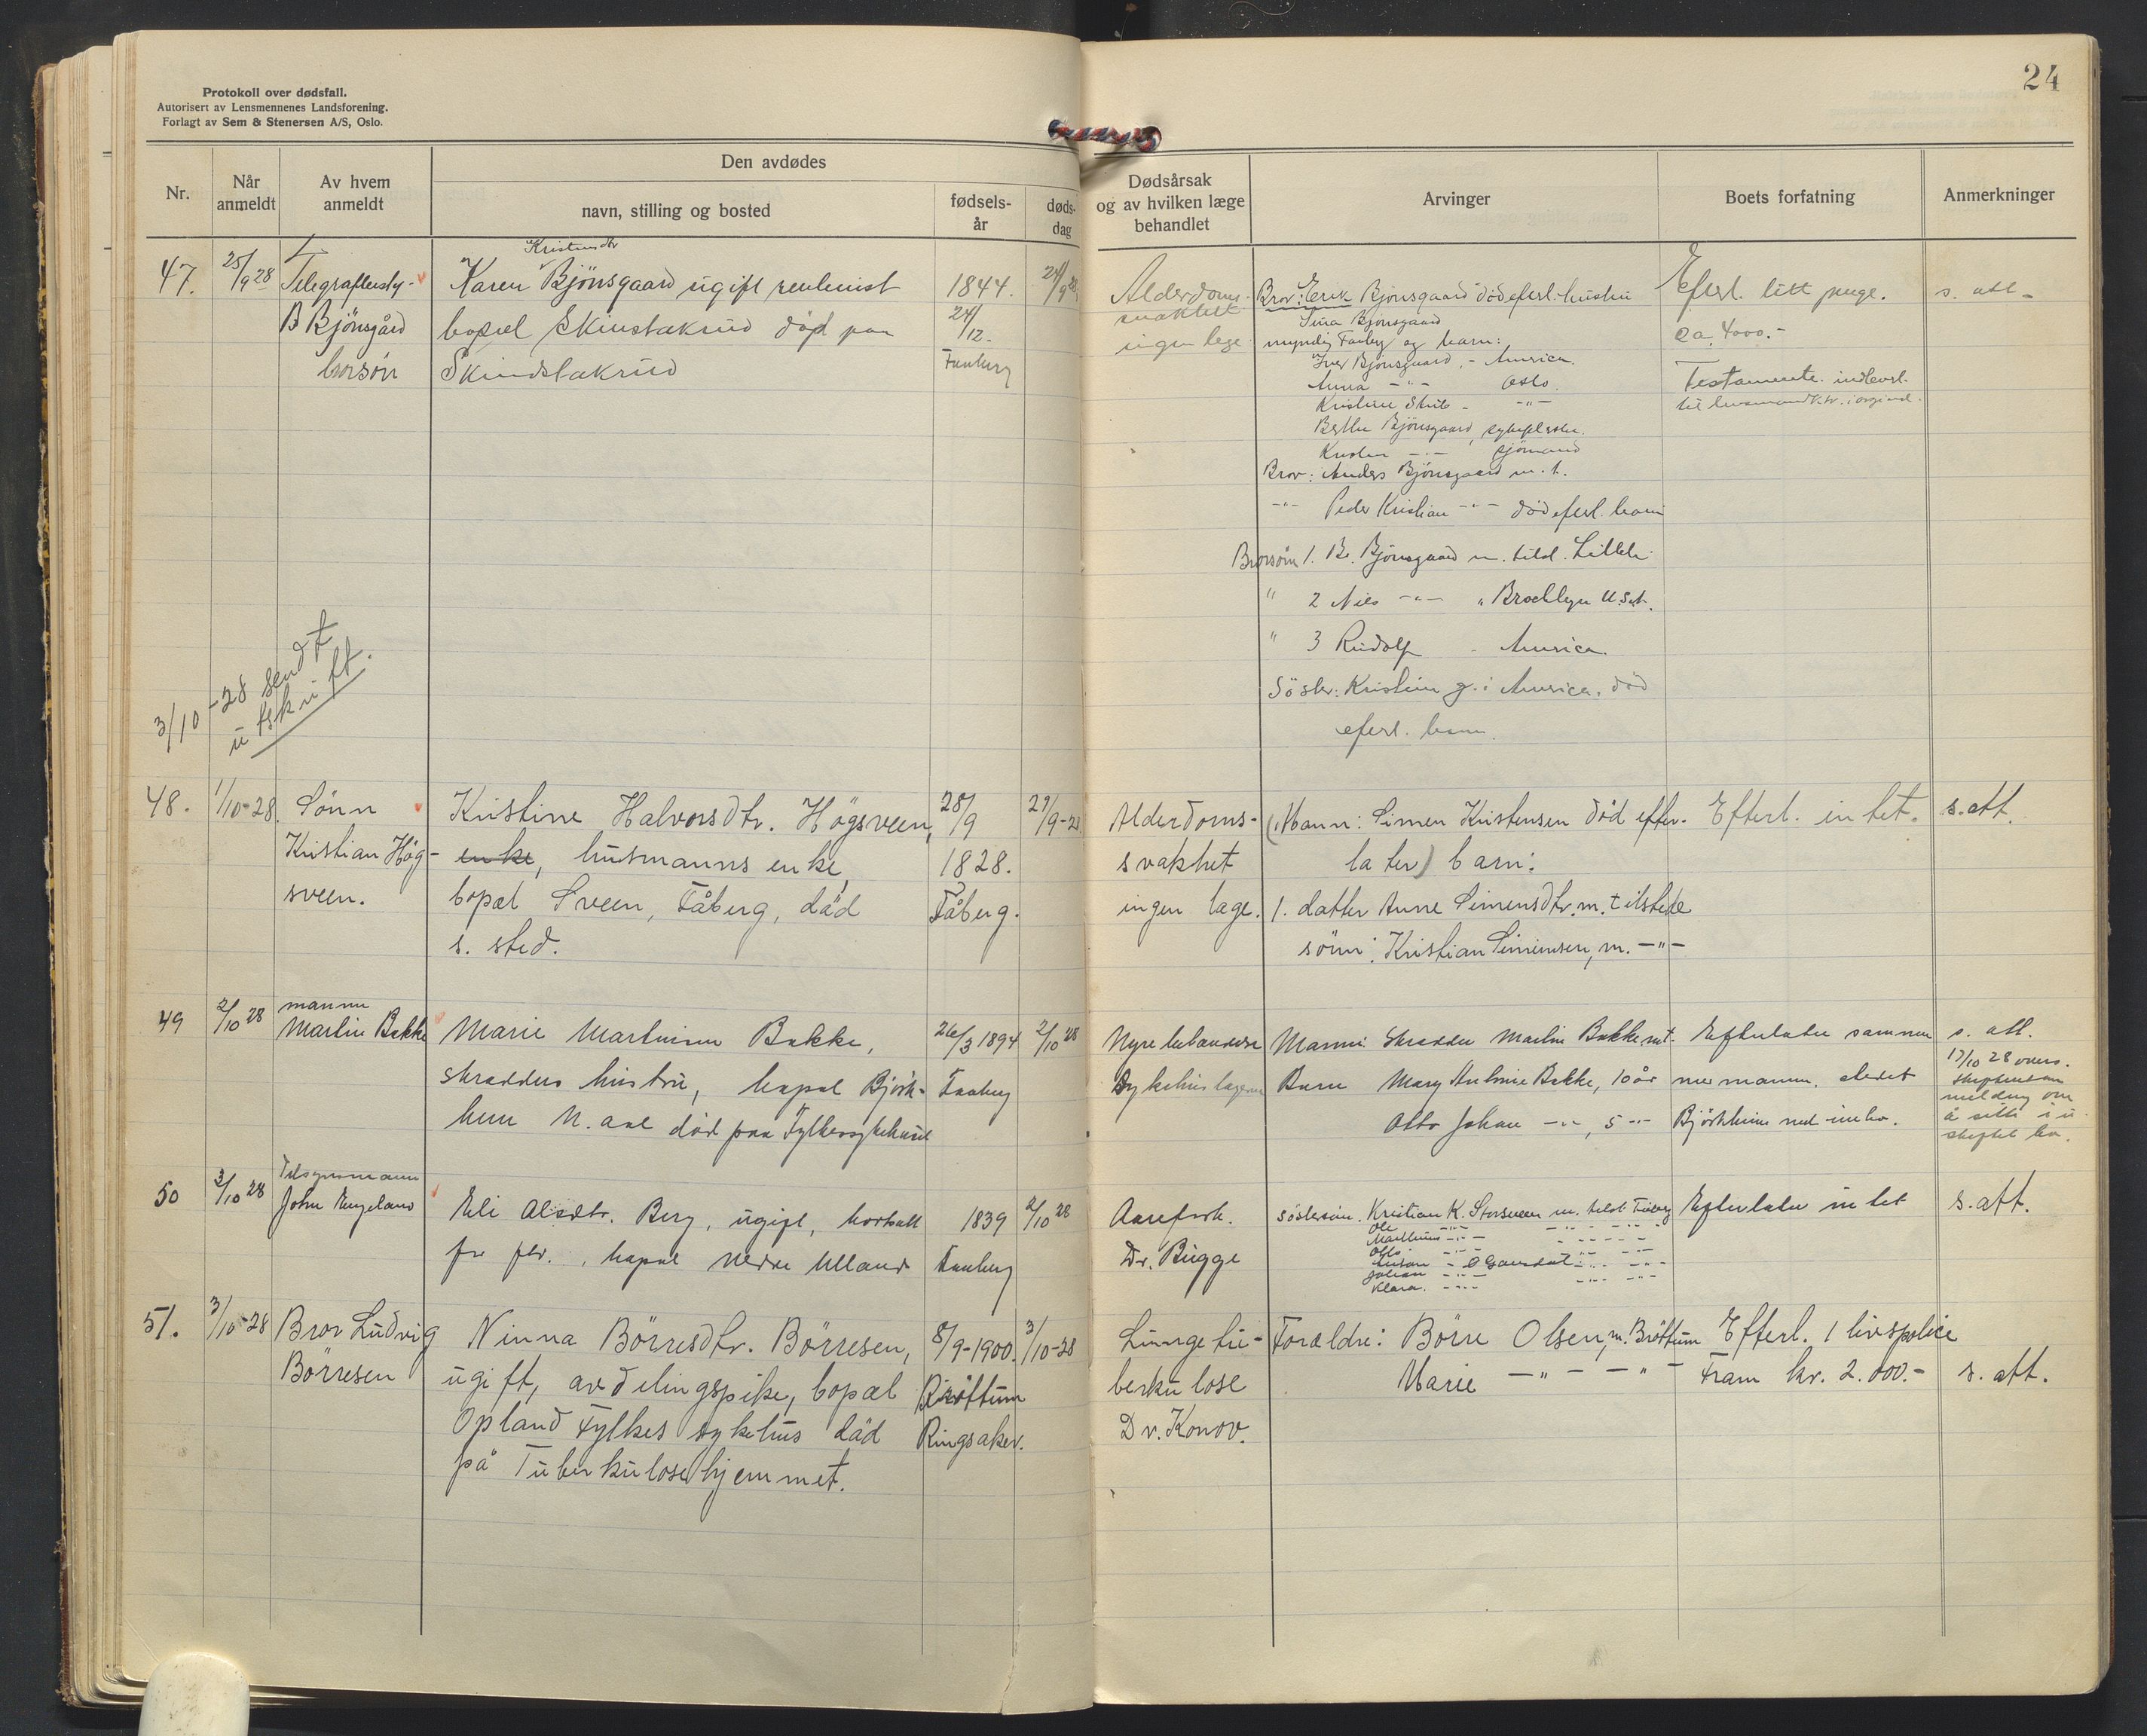 Protokoll over dødsfall.
Autorisert av Lensmennenes Landsforening.
Forlagt av Sem & Stenersen A/S, Oslo.
24
Nr.
Når anmeldt
Av hvem anmeldt
Den avdødes
navn, stilling og bosted
fødsels-år
døds-dag
Dødsårsak og av hvilken læge behandlet
Arvinger
Boets forfatning
Anmerkninger
47.
25/9 28
B Bjönsgård
brorsön
Karen Bjönsgaard ugift
bopæl Skinstakrud död paa
Skindstakrud
1844.
24/12.
Faaberg
24/9 28
Alderdoms-
svakhet
ingen læge
Bror: Erik Bjönsgaard död efterl. hustru
Sina Bjönsgaard
myndig Faaberg og barn:
Iver Bjönsgaard - America.
Anna -"- Oslo.
Kristine -"-
Bjönsgaard,
-"- sjömand
Bror: Anders Bjönsgaard
-"- Peder Kristian -"- död efterl. barn
Brorsönn 1. Bjönsgaard m. Lilleh.
" 2 Nils -"- " U.S.A.
" 3 Rudolf - America.
Söster: Kristine g. i America. död
efterl. barn.
Efterl. litt penge.
ca. 4000.-
Testamente indlevert
s. att.
3/10-28 sendt
utskrift.
48.
1/10-28
Sönn
Kristian Hög-
sveen.
Kristine Halvorsdtr. Högsveen,
enke, husmanns enke,
bopæl Sveen, Fåberg, död
s. sted.
28/9
1828.
Fåberg.
29/9-28
Alderdoms-
svakhet
ingen læge.
(Mann: Simen Kristensen död efter-
later) barn:
1. datter Anne Simensdtr. m. tilstede
sönn: Kristian Simensen, m. -"-
Efterl. intet.
s. att.
49
2/10 28
mannen
Martin Bakke
Marie Bakke,
skrædders hustru, bopæl Björk-
heim N. Aal död paa Fylkessykehuset
26/3 1894
Faaberg
2/10 28
Nyre
Sykehuslægen
Mann: Skrædder Martin Bakke
Barn Mary Antonie Bakke, 10 år
Otto Johan -"-, 5 -"-
Efterlater sammen
med mannen
Björkheim med innbo.
s. att.
17/10 28
melding om
å sitte i u-
skiftet bo.
50
3/10 28
Tilsynsmann
John Engeland
Eli Olsdtr. Berg, ugift,
bopæl Nedre Ulland
1839
Faaberg
2/10 28
Aarefork.
Dr. Bugge
Söstersönn. Kristian K. Storsveen m. Faaberg
Ole -"-
Otto -"-
Johan -"-
Klara. -"-
Efterlater intet
s. att.
51.
3/10-28
Bror Ludvig
Börresen
Ninna Börresdtr. Börresen,
ugift, avdelingspike, bopæl
Opland Fylkes sykehus död
på Tuberkulosehjemmet.
8/9-1900.
Bröttum
Ringsaker.
3/10-28
Lungetu-
berkulose
Dr. Konow.
Forældre: Börre Olsen, m. Bröttum
Marie -"- -"-
Efterl. 1 livspolice
Fram kr. 2.000.-
s. att.